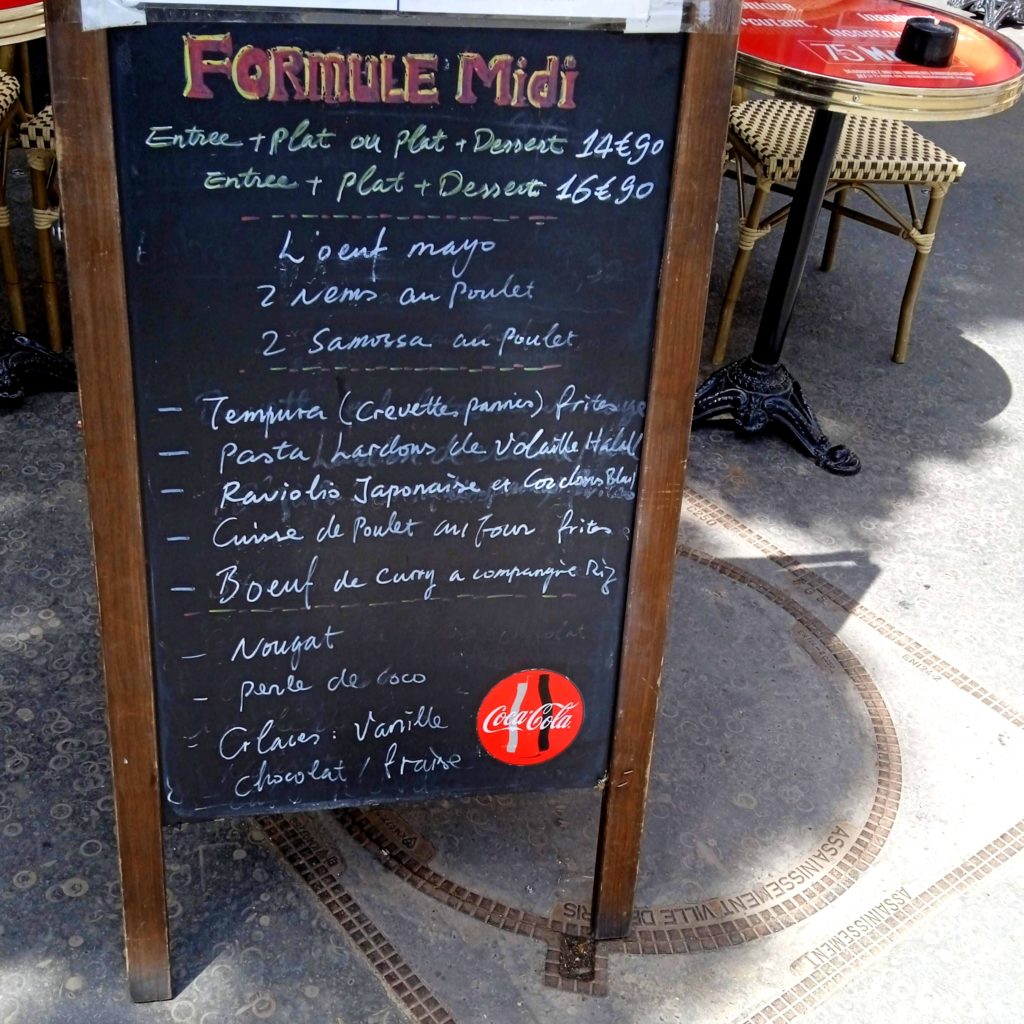 FORMULE Midi
Entree + Plat ou Plat + Dessert 14€90
Entree + Plat + Dessert 16€90
L'oeuf mayo
2 Nems au Poulet
2 Samossa au poulet
- Tempura (crevettes pannés) frites
- Pasta Lardons de Volaille Halall
- Raviolis Japonaise et Cordons Bleu
- Cuisse de Poulet au four frites
- Boeuf de Curry acompangné Riz
- Nougat
- perle de coco
- Glaces: Vanille
chocolat / fraise
Coca-Cola
75
ASSAINISSEMENT VILLE DE PARIS
ASSAINISSEMENT
EN124-2